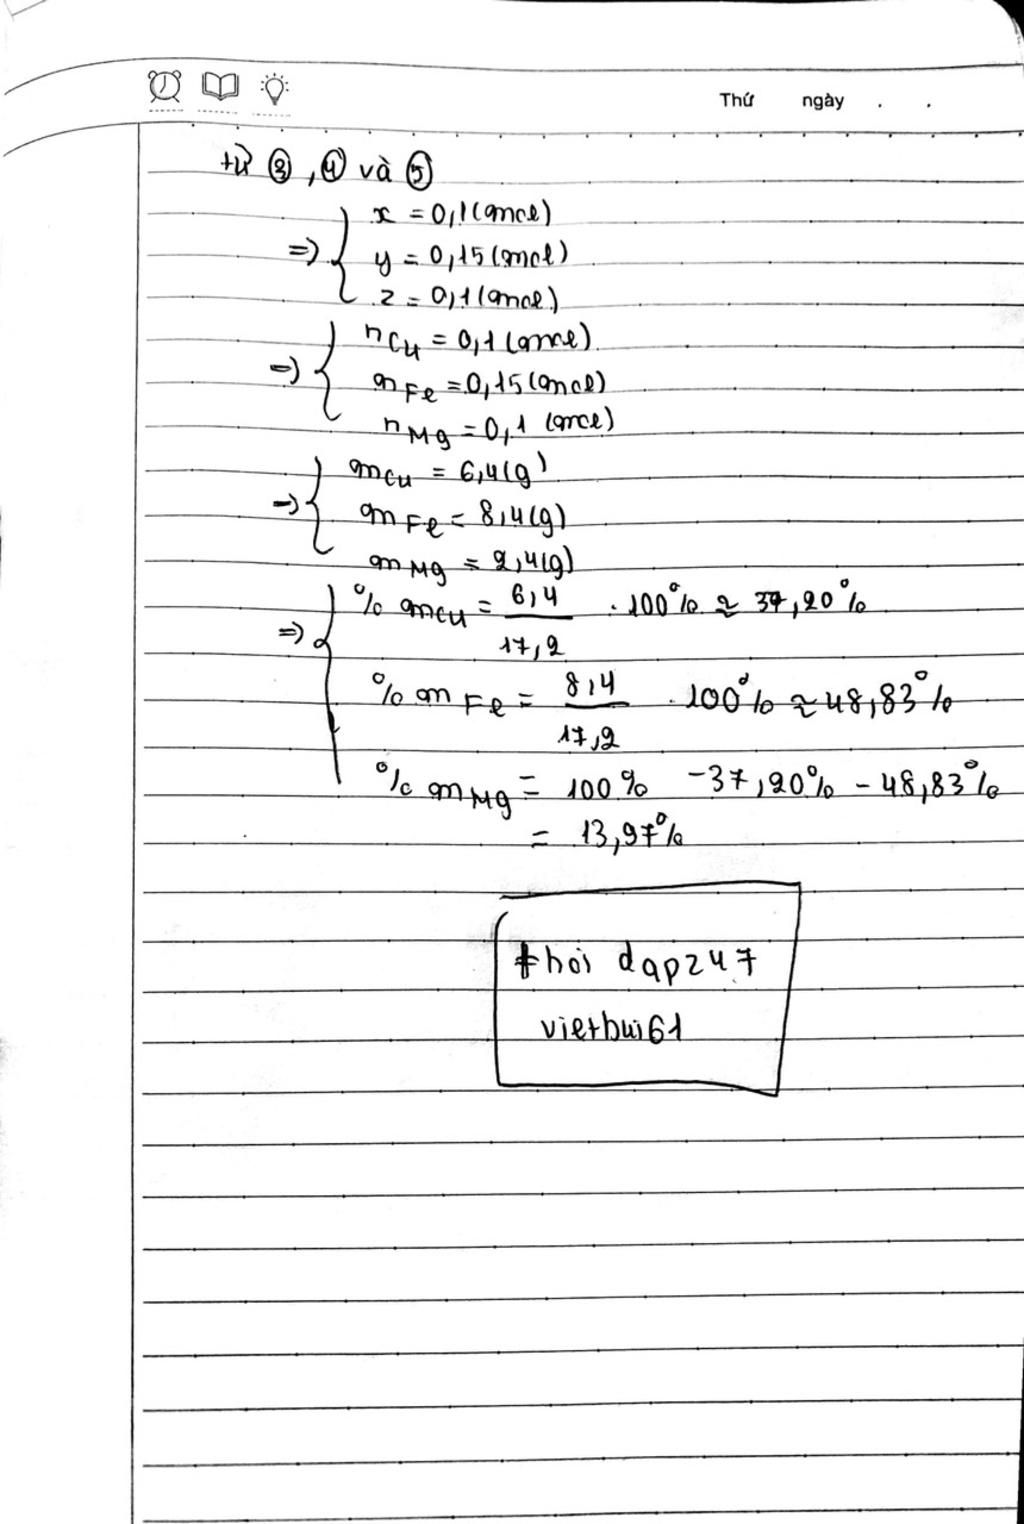 Thứ ngày . .
từ ③, ④ và ⑤
=> { x = 0,1 (mol)
y = 0,15 (mol)
z = 0,1 (mol)
=> { nCu = 0,1 (mol)
nFe = 0,15 (mol)
nMg = 0,1 (mol)
=> { mCu = 6,4 (g)
mFe = 8,4 (g)
mMg = 2,4 (g)
=> { % mCu = 6,4 / 17,2 . 100% ≈ 37,20%
% mFe = 8,4 / 17,2 . 100% ≈ 48,83%
% mMg = 100% - 37,20% - 48,83%
= 13,97%
#hoi dap247
vietbui61